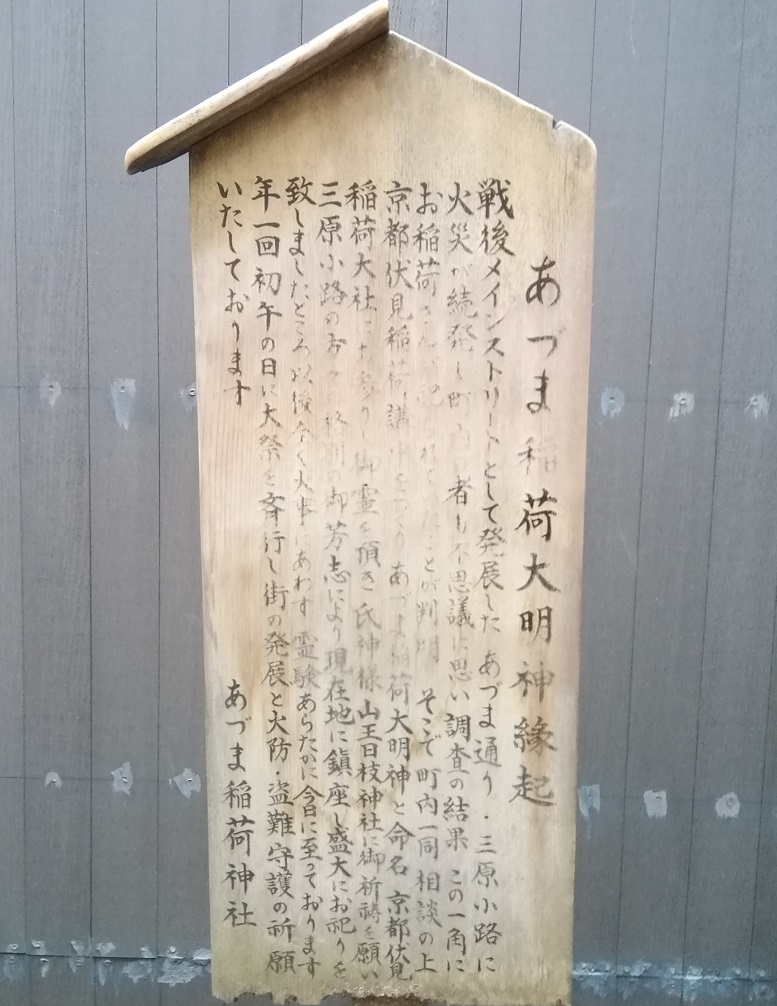 あづま稲荷大明神縁起
戦後メインストリートとして発展した あづま通り・三原小路に
火災が続発し町内の者も不思議に思い 調査の結果 この一角に
お稲荷さんが祀られて ことが判明 そこで町内一同相談の上
京都伏見稲荷講中をつくり あづま稲荷大明神と命名 京都伏見
稲荷大社にお参りし御霊を頂き 氏神様山王日枝神社に御祈祷を願い
三原小路の 格別の御芳志により現在地に鎮座し盛大にお祀りを
致しましたところ 以後全く火事にあわず 霊験あらたかに今日に至っております
年一回初午の日に大祭を斉行し街の発展と火防・盗難守護の祈願
いたしております
あづま稲荷神社